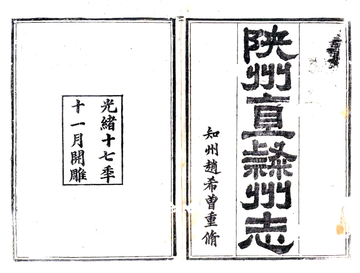 陜州直隸州志
知州趙希曾重脩
光緒十七年
十一月開雕